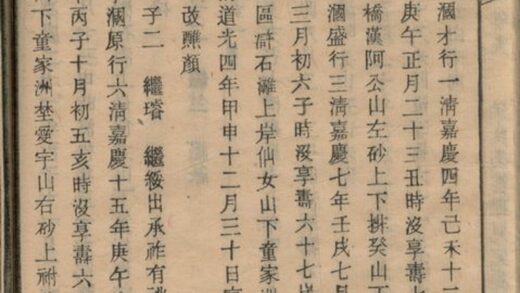 國才行一清嘉慶四年己未十二
庚午正月二十三丑時沒享壽七
橋漢阿公山左砂上下排癸山丁
國盛行三清嘉慶七年壬戌七月
三月初六子時沒享壽六十七歲
區滸石灘上岸仙女山下童家洲
道光四年甲申十二月三十日
改醮顏
子二 繼璿 繼綏出承祚有祧
國原行六清嘉慶十五年庚午
丙子十月初五亥時沒享壽六
下童家洲塟愛宇山右砂上祔